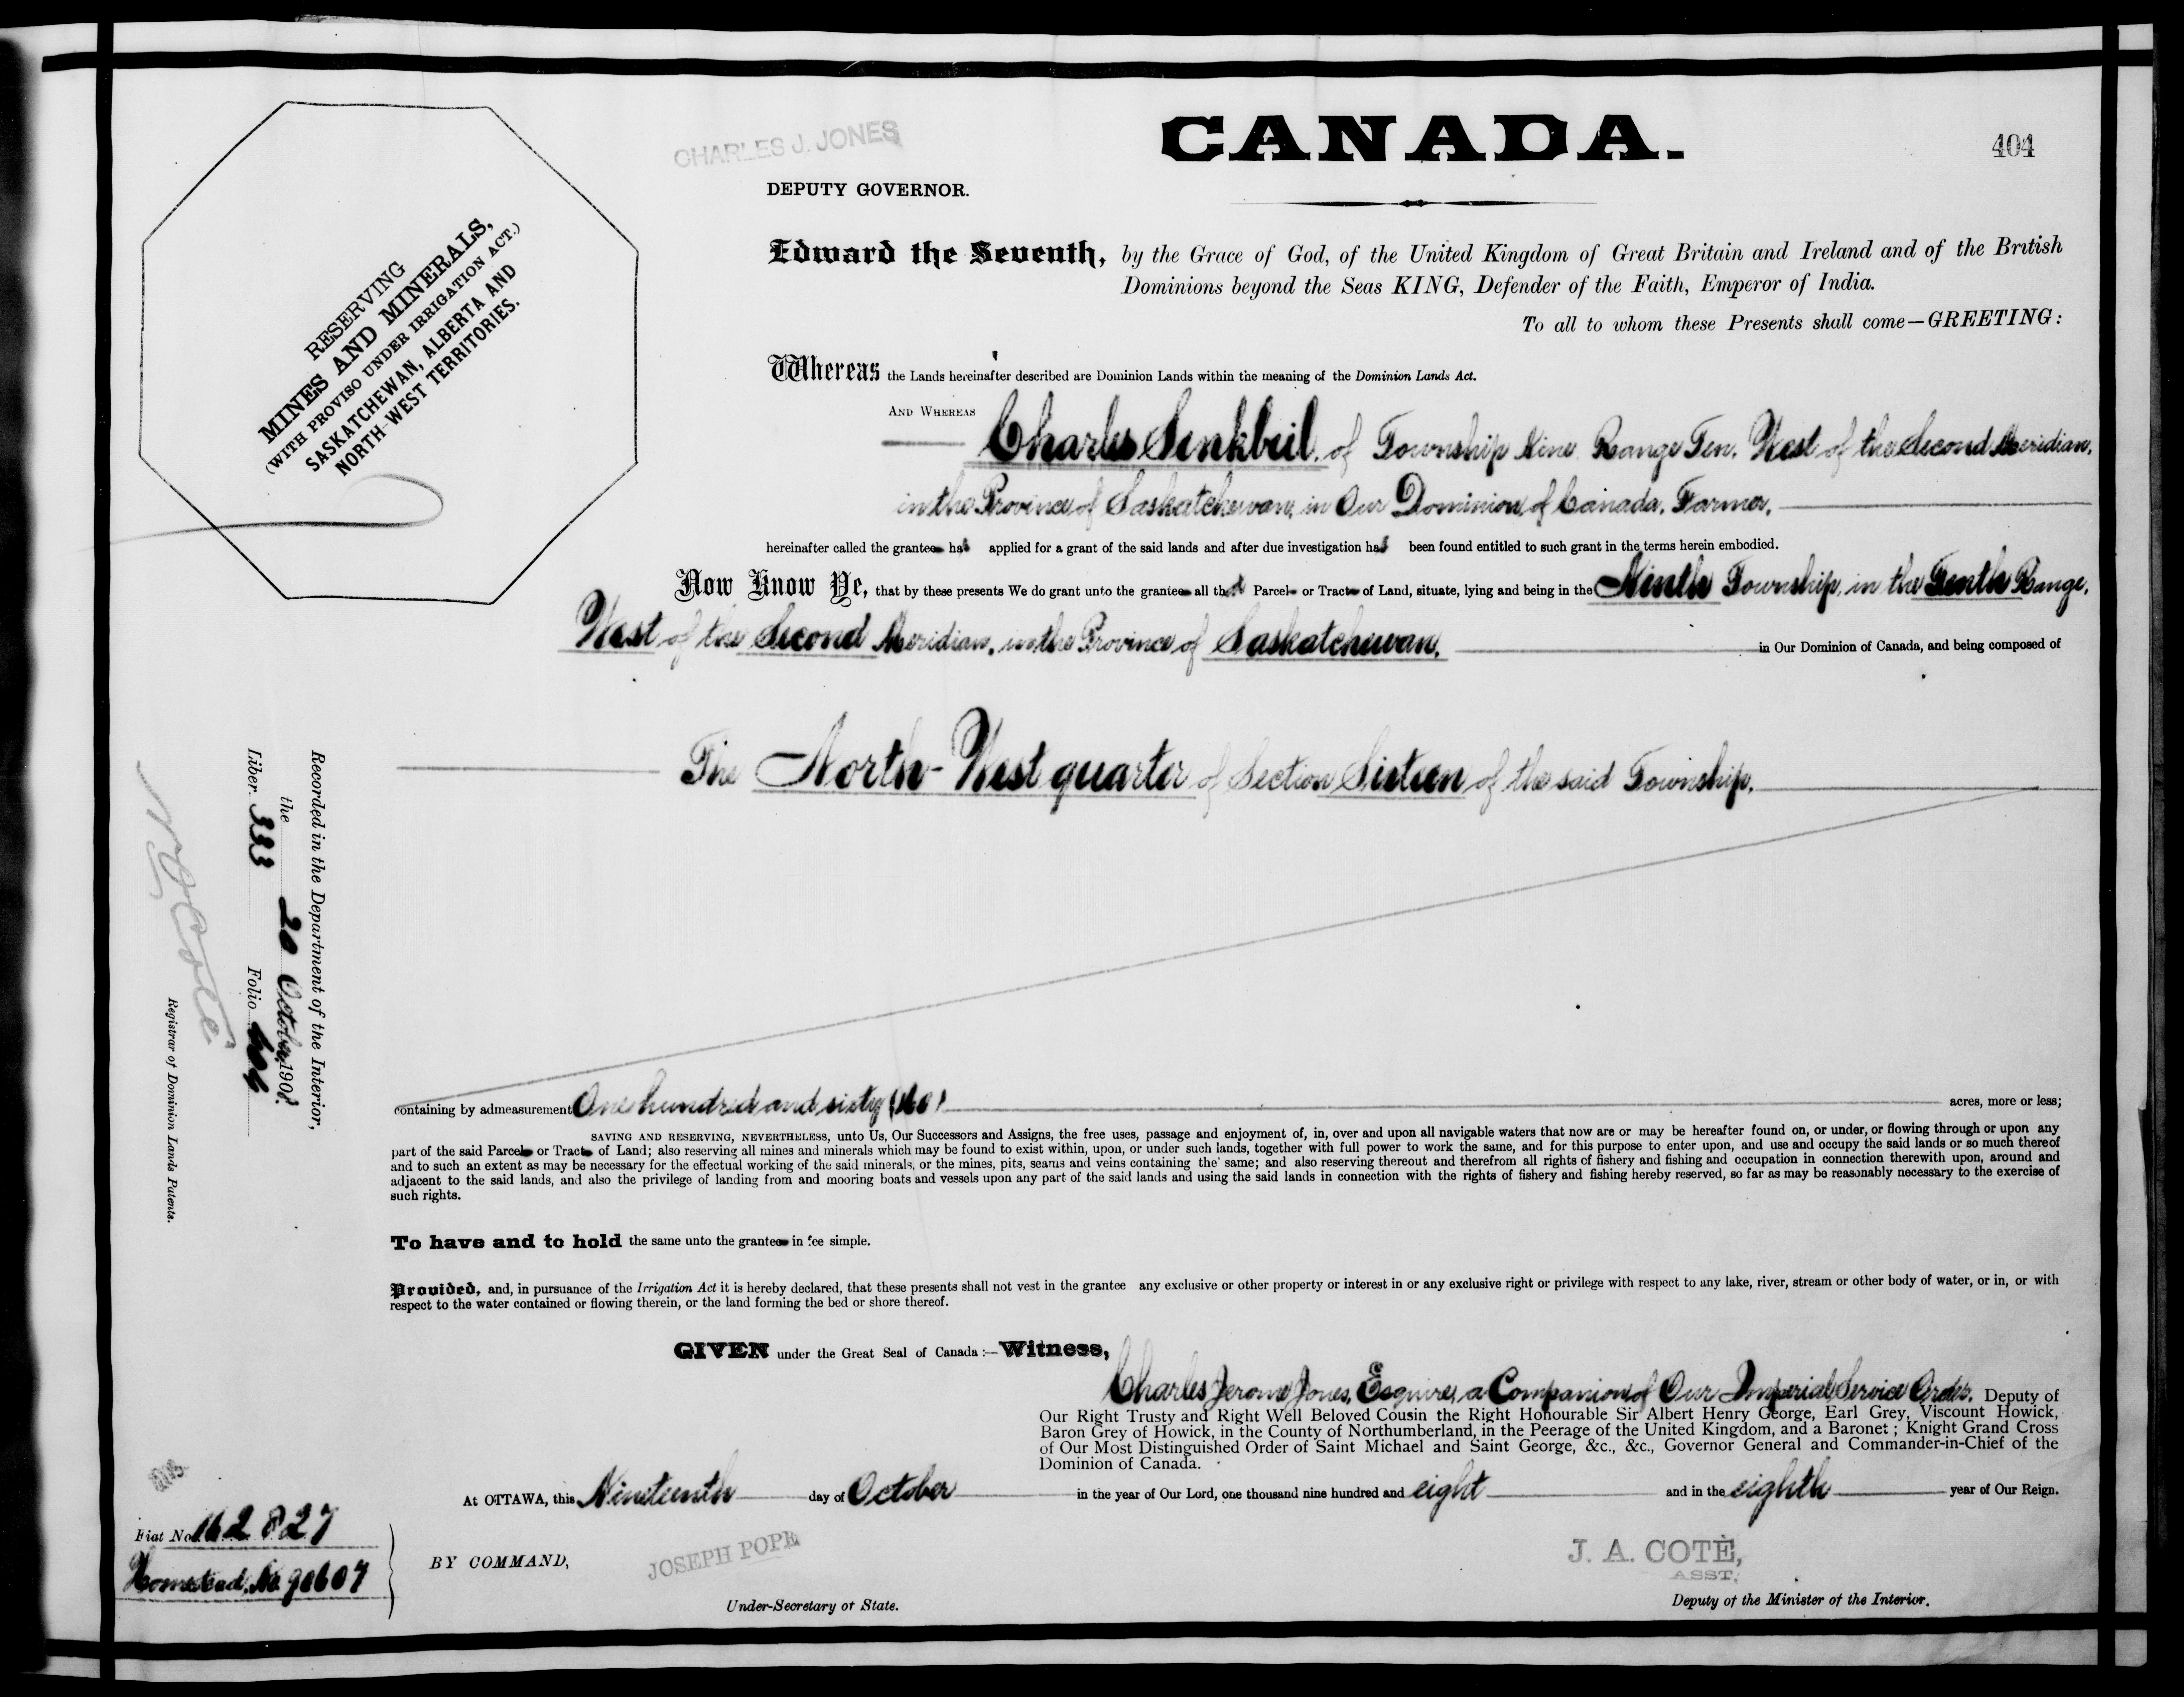 CHARLES J. JONES
CANADA.
404
DEPUTY GOVERNOR.
RESERVING
MINES AND MINERALS,
(WITH PROVISO UNDER IRRIGATION ACT.)
SASKATCHEWAN, ALBERTA AND
NORTH-WEST TERRITORIES.
Edward the Seventh, by the Grace of God, of the United Kingdom of Great Britain and Ireland and of the British
Dominions beyond the Seas KING, Defender of the Faith, Emperor of India.
To all to whom these Presents shall come—GREETING:
Whereas the Lands hereinafter described are Dominion Lands within the meaning of the Dominion Lands Act.
AND WHEREAS Charles Senkbeil, of Township Nine Range Ten, West of the Second Meridian,
in the Province of Saskatchewan, in Our Dominion of Canada, Farmer,
hereinafter called the grantee has applied for a grant of the said lands and after due investigation has been found entitled to such grant in the terms herein embodied.
Now Know Ye, that by these presents We do grant unto the grantee all that Parcel or Tract of Land, situate, lying and being in the Ninth Township, in the Tenth Range,
West of the Second Meridian, in the Province of Saskatchewan, in Our Dominion of Canada, and being composed of
The North-West quarter of Section Sixteen of the said Township,
containing by admeasurement One hundred and sixty (160) acres, more or less;
SAVING AND RESERVING, NEVERTHELESS, unto Us, Our Successors and Assigns, the free uses, passage and enjoyment of, in, over and upon all navigable waters that now are or may be hereafter found on, or under, or flowing through or upon any
part of the said Parcel or Tract of Land; also reserving all mines and minerals which may be found to exist within, upon, or under such lands, together with full power to work the same, and for this purpose to enter upon, and use and occupy the said lands or so much thereof
and to such an extent as may be necessary for the effectual working of the said minerals, or the mines, pits, seams and veins containing the same; and also reserving thereout and therefrom all rights of fishery and fishing and occupation in connection therewith upon, around and
adjacent to the said lands, and also the privilege of landing from and mooring boats and vessels upon any part of the said lands and using the said lands in connection with the rights of fishery and fishing hereby reserved, so far as may be reasonably necessary to the exercise of
such rights.
To have and to hold the same unto the grantee in fee simple.
Provided, and, in pursuance of the Irrigation Act it is hereby declared, that these presents shall not vest in the grantee any exclusive or other property or interest in or any exclusive right or privilege with respect to any lake, river, stream or other body of water, or in, or with
respect to the water contained or flowing therein, or the land forming the bed or shore thereof.
GIVEN under the Great Seal of Canada:—Witness,
Charles Jerome Jones, Esquire, a Companion of Our Imperial Service Order, Deputy of
Our Right Trusty and Right Well Beloved Cousin the Right Honourable Sir Albert Henry George, Earl Grey, Viscount Howick,
Baron Grey of Howick, in the County of Northumberland, in the Peerage of the United Kingdom, and a Baronet; Knight Grand Cross
of Our Most Distinguished Order of Saint Michael and Saint George, &c., &c., Governor General and Commander-in-Chief of the
Dominion of Canada.
At OTTAWA, this Nineteenth day of October in the year of Our Lord, one thousand nine hundred and eight and in the eighth year of Our Reign.
BY COMMAND,
JOSEPH POPE
Under-Secretary of State.
J. A. COTÈ,
ASST.
Deputy of the Minister of the Interior.
Recorded in the Department of the Interior,
the 20 October, 1908.
Liber 333 Folio 404
Registrar of Dominion Lands Patents.
Fiat No. 162827
Homestead, No. 90607